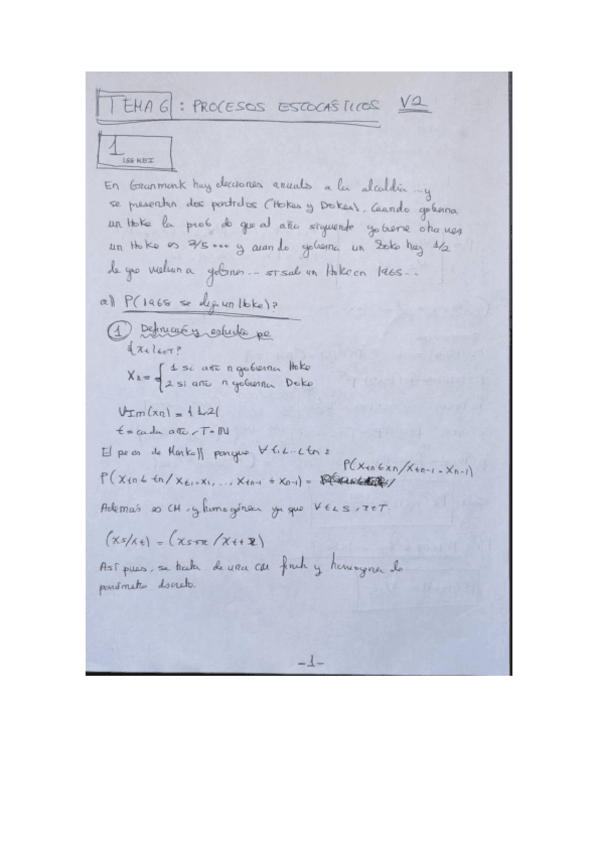 TEMA 6 : PROCESOS ESTOCÁSTICOS V2
1
En Granmank hay elecciones anuales a la alcaldía ... y
se presentan dos partidos (Hokes y Dokes). Cuando gobierna
un Hoke la prob de que al año siguiente gobierne otra vez
un Hoke es 7/5 ... y cuando gobierna un Doke hay 1/2
de que vuelvan a gobernar ... si sale un Hoke en 1965 ..
a)) P(1968 se elija un Hoke)?
1 Definición y estudio pe
{Xt}t∈T?
Xn = { 1 si año n gobierna Hoke
2 si año n gobierna Doke
VIm(Xn) = {1,2}
t = cada año, T = ℕ
El peos de Markoff porque ∀ t1<..<tn :
P(Xtn ≤ xn / Xtn-1 = Xn-1)
P(Xtn ≤ tn / Xt1 = x1, ..., Xtn-1 = xn-1) =
Además es CM y homogénea ya que ∀ t<s, z∈T
(Xs/Xt) = (Xs+z / Xt+z)
Así pues, se trata de una CM finita y homogénea de
parámetro discreto.
-1-